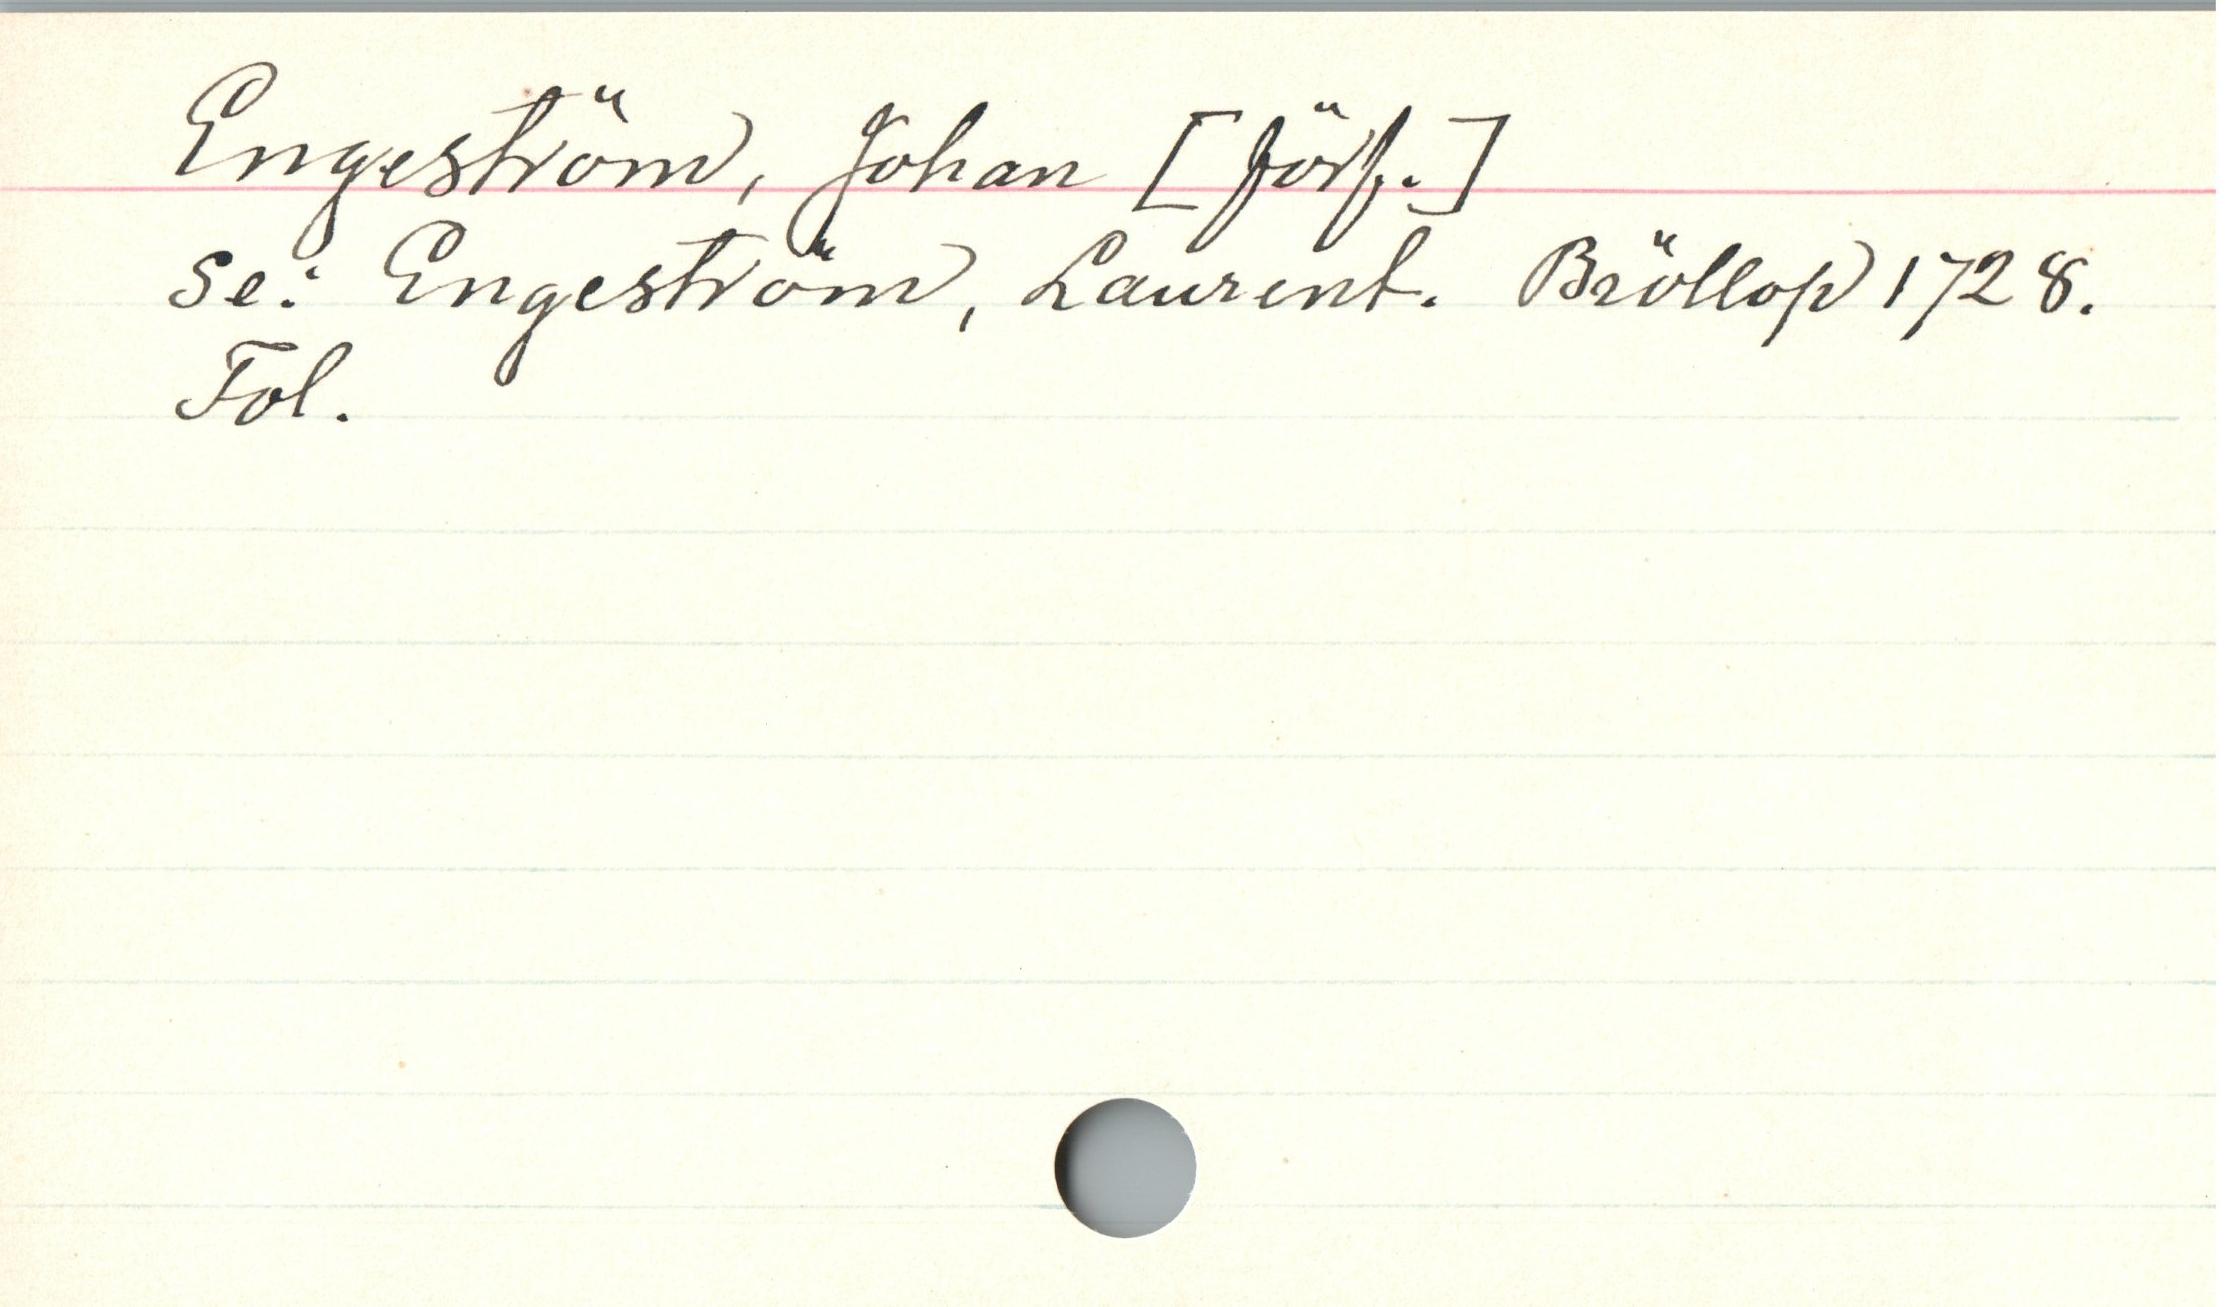 Engeström, Johan [förf.]
se: Engeström, Laurent. Bröllop 1728.
Fol.